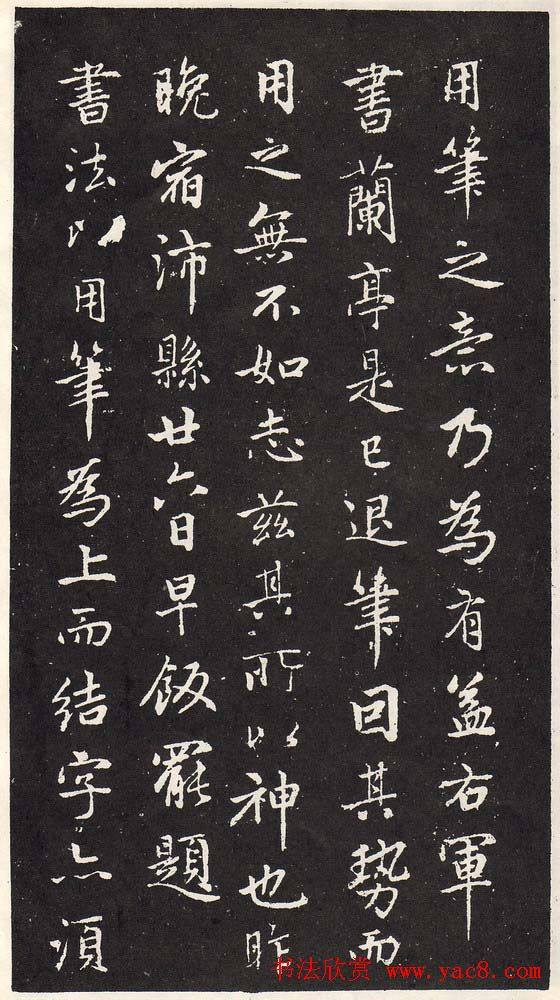 用筆之意乃為有益右軍
書蘭亭是已退筆因其勢而
用之無不如志茲其所以神也昨
晚宿沛縣廿六日早飯罷題
書法以用筆為上而結字亦須
书法欣赏 www.yac8.com